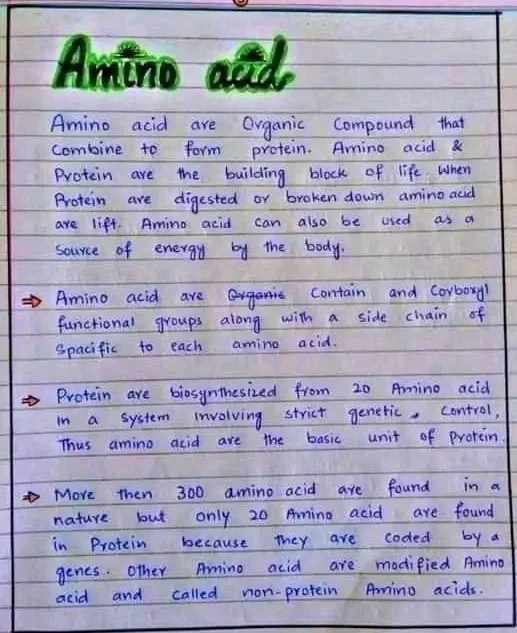 Amino acid
Amino acid are Organic Compound that
Combine to form protein. Amino acid &
Protein are the building block of life. When
Protein are digested or broken down amino acid
are lift. Amino acid can also be used as a
Source of energy by the body.
⇒ Amino acid are Organic Contain and Corboxyl
functional groups along with a side chain of
Spacific to each amino acid.
⇒ Protein are biosynthesized from 20 Amino acid
in a System involving strict genetic, Control,
Thus amino acid are the basic unit of Protein.
⇒ More then 300 amino acid are found in a
nature but only 20 Amino acid are found
in Protein because they are coded by a
genes. Other Amino acid are modified Amino
acid and called non-protein Amino acids.